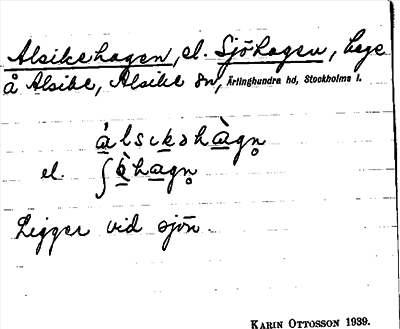 Alsikehagen, el. Sjöhagen, hage
å Alsike, Alsike sn, Ärlinghundra hd, Stockholms l.
àlsıkəhàgn̥
el. ʃö̀hagn̥
Ligger vid sjön.
KARIN OTTOSSON 1939.